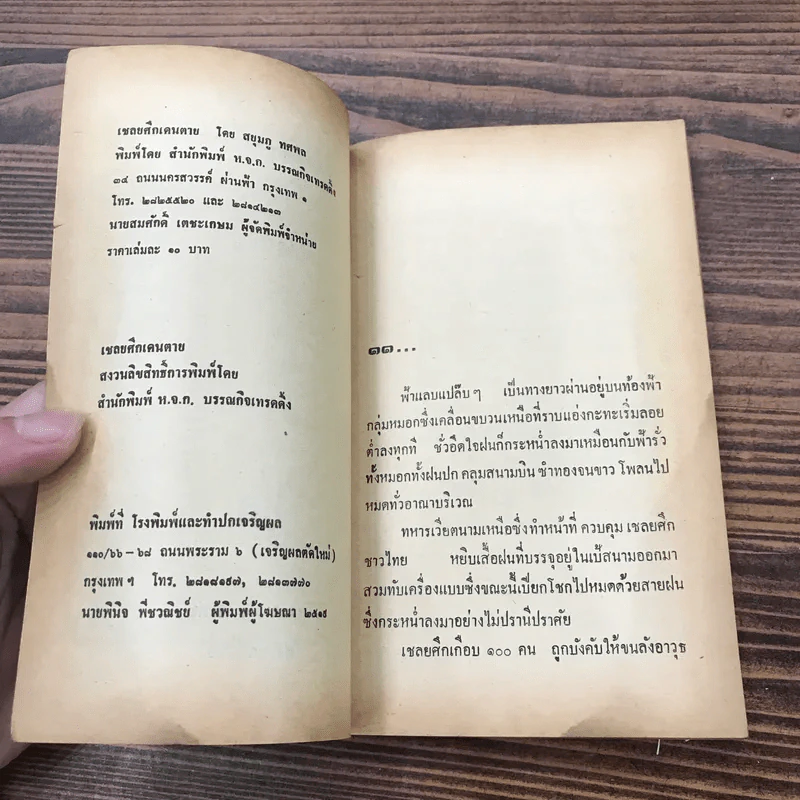 เชลยศึกเดนตาย โดย สยุมภู ทศพล
พิมพ์โดย สำนักพิมพ์ ห.จ.ก. บรรณกิจเทรดดิ้ง
๓๔ ถนนนครสวรรค์ ผ่านฟ้า กรุงเทพ ๑
โทร. ๒๘๒๕๕๒๐ และ ๒๘๑๔๒๑๓
นายสมศักดิ์ เตชะเกษม ผู้จัดพิมพ์จำหน่าย
ราคาเล่มละ ๑๐ บาท
เชลยศึกเดนตาย
สงวนลิขสิทธิ์การพิมพ์โดย
สำนักพิมพ์ ห.จ.ก. บรรณกิจเทรดดิ้ง
พิมพ์ที่ โรงพิมพ์และทำปกเจริญผล
๑๑๐/๖๖-๖๘ ถนนพระราม ๖ (เจริญผลตัดใหม่)
กรุงเทพฯ โทร. ๒๘๑๘๑๙๗, ๒๘๑๓๗๗๐
นายพินิจ พืชวณิชย์ ผู้พิมพ์ผู้โฆษณา ๒๕๑๙
๑๑...
ฟ้าแลบแปล๊บๆ เป็นทางยาวผ่านอยู่บนท้องฟ้า
กลุ่มหมอกซึ่งเคลื่อนขบวนเหนือที่ราบแอ่งกะทะเริ่มลอย
ต่ำลงทุกที ชั่วอึดใจฝนก็กระหน่ำลงมาเหมือนกับฟ้ารั่ว
ทั้งหมอกทั้งฝนปก คลุมสนามบิน ซำทองจนขาว โพลนไป
หมดทั่วอาณาบริเวณ
ทหารเวียตนามเหนือซึ่ง ทำหน้าที่ ควบคุม เชลยศึก
ชาวไทย หยิบเสื้อฝนที่บรรจุอยู่ในเป้สนามออกมา
สวมทับเครื่องแบบซึ่งขณะนี้เปียกโชกไปหมดด้วยสายฝน
ซึ่งกระหน่ำลงมาอย่างไม่ปรานีปราศัย
เชลยศึกเกือบ ๑๐๐ คน ถูกบังคับให้ขนลังอาวุธ